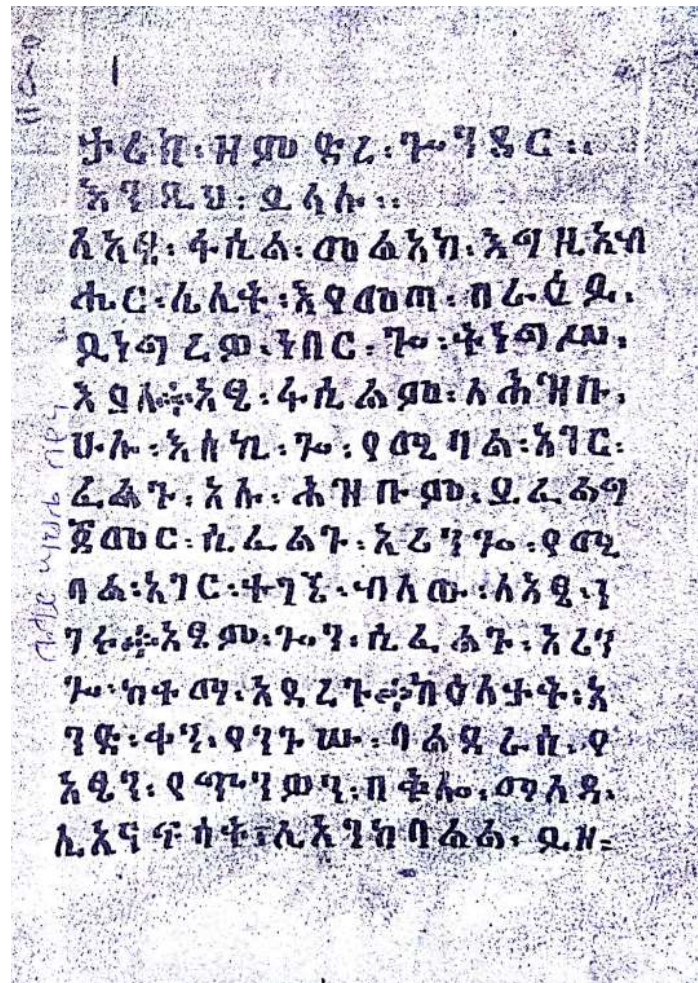 ታሪክ፡ዝምድረ፡ጐንደር።
እንዲህ፡ይላሉ።
ለአፄ፡ፋሲል፡መልአከ፡እግዚአብ
ሔር፡ሌሊት፡እየመጣ፡በራዕይ፡
ይነግረው፡ነበር፡ጐ፡ትነግሣለህ፡
እያለ፨አፄ፡ፋሲልም፡ለሕዝቡ፡
ሁሉ፡እስኪ፡ጐ፡የሚባል፡አገር፡
ፈልጉ፡አሉ፡ሕዝቡም፡ይፈልግ
ጀመር፡ሲፈልጉ፡አሪንጐ፡የሚ
ባል፡አገር፡ተገኜ፡ብለው፡ለአፄ፡ነ
ገሩ፨አፄም፡ጐን፡ሲፈልጉ፡አሪን
ጐ፡ከተማ፡አደረጉ፨ከዕለታት፡አ
ንድ፡ቀን፡የንጉሡ፡ባልደራስ፡የ
አፄን፡የጭነውን፡በቅሎ፡ማለዳ፡
ሊአናፍሳት፡ሊአንከባልል፡ይዘ=